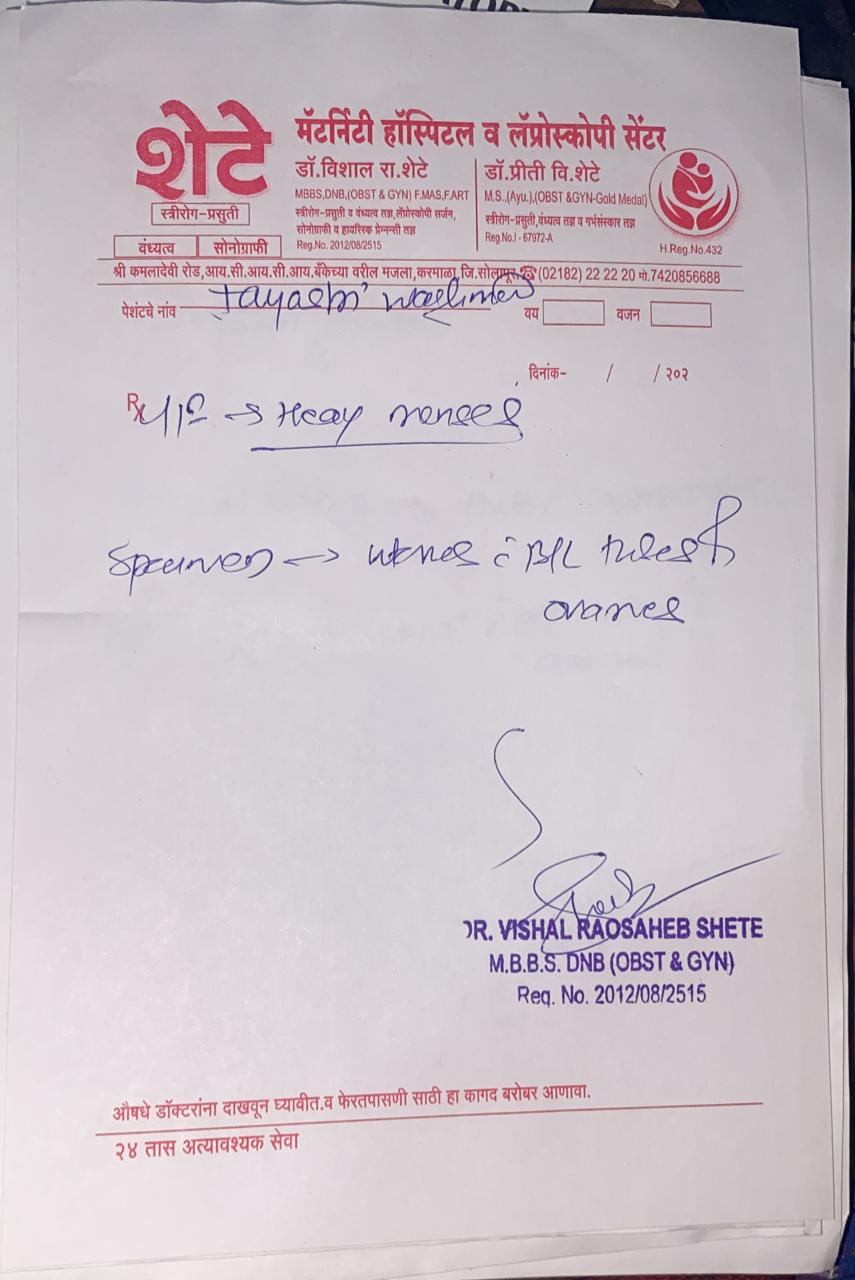 शेटे
स्त्रीरोग-प्रसुती
वंध्यत्व सोनोग्राफी
मॅटर्निटी हॉस्पिटल व लॅप्रोस्कोपी सेंटर
डॉ.विशाल रा.शेटे
MBBS,DNB,(OBST & GYN) F.MAS,F.ART
स्त्रीरोग-प्रसुती व वंध्यत्व तज्ञ,लॅप्रोस्कोपी सर्जन,
सोनोग्राफी व हायरिस्क प्रेग्नन्सी तज्ञ
Reg.No. 2012/08/2515
डॉ.प्रीती वि.शेटे
M.S.,(Ayu.),(OBST &GYN-Gold Medal)
स्त्रीरोग-प्रसुती,वंध्यत्व तज्ञ व गर्भसंस्कार तज्ञ
Reg.No.I - 67972-A
H.Reg.No.432
श्री कमलादेवी रोड,आय.सी.आय.सी.आय.बँकेच्या वरील मजला,करमाळा,जि.सोलापूर.☎(02182) 22 22 20 मो.7420856688
पेशंटचे नांव वय वजन
दिनांक- / / २०२
Rx → Heay menses
Specimen → c B/L tubes
ovaries
DR. VISHAL RAOSAHEB SHETE
M.B.B.S. DNB (OBST & GYN)
Reg. No. 2012/08/2515
औषधे डॉक्टरांना दाखवून घ्यावीत.व फेरतपासणी साठी हा कागद बरोबर आणावा.
२४ तास अत्यावश्यक सेवा